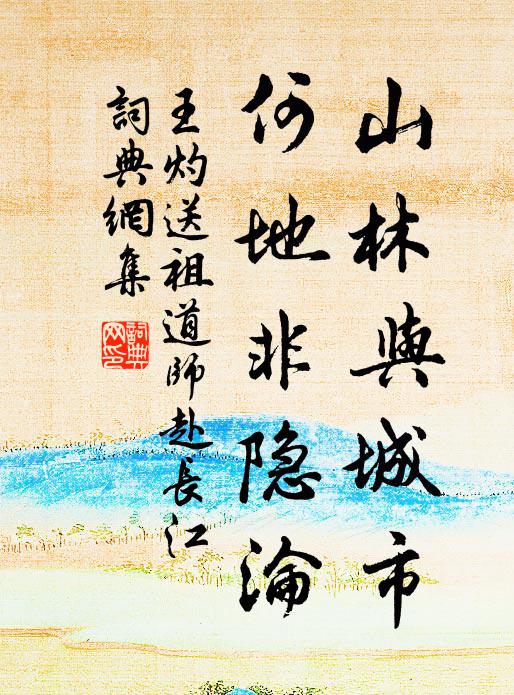 山林與城市
何地非隐淪
王灼送祖道師赴長江
詞典網集
詞典網印